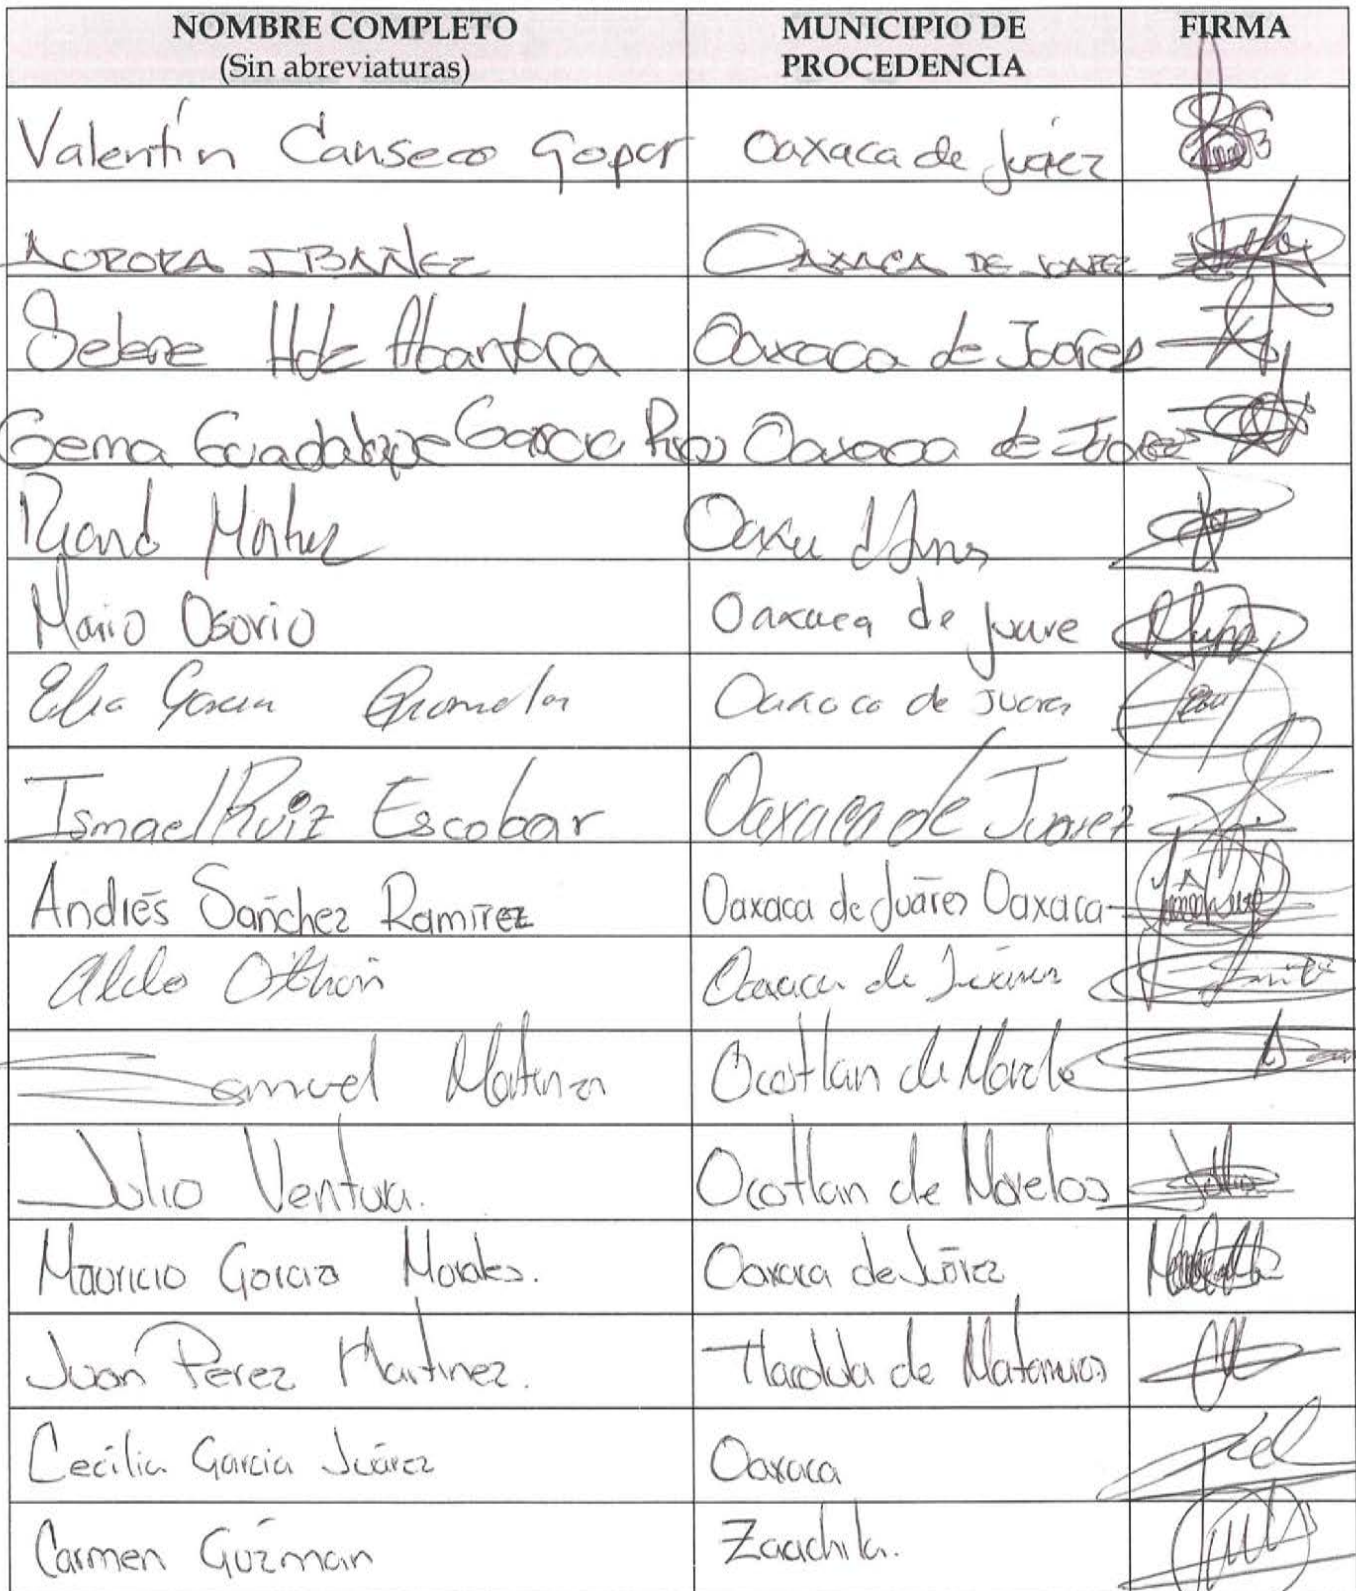 NOMBRE COMPLETO
(Sin abreviaturas)
MUNICIPIO DE
PROCEDENCIA
FIRMA
Valentín Canseco Gopar Oaxaca de Juárez
AURORA IBAÑEZ OAXACA DE JUAREZ
Selene Hdz Oaxaca de Juárez
Gema Guadalupe Garcia Oaxaca de Juarez
Mario Osorio Oaxaca de
Elia Oaxaca de Juarez
Ismael Ruiz Escobar Oaxaca de Juarez
Andrés Sánchez Ramírez Oaxaca de Juáres Oaxaca
Aldo Othón Oaxaca de Juárez
Samuel Ocotlan de
Julio Ventura. Ocotlan de Morelos
Mauricio Garcia Morales. Oaxaca de Juárez
Juan Perez Martinez. de Matamoros
Cecilia Garcia Juárez Oaxaca
Carmen Guzman Zaachila.